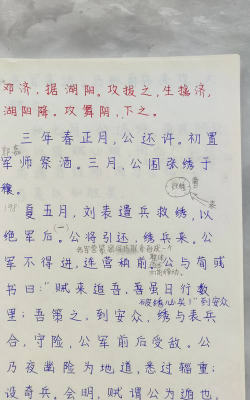 邓济，据湖阳。攻拔之，生擒济，
湖阳降。攻舞阴，下之。
三年春正月，公还许。初置
军师祭酒。三月，公围张绣于
穰。
198
夏五月，刘表遣兵救绣，以
绝军后。公将引还，绣兵来。公
军不得进，连营稍前。公与荀彧
书曰："贼来追吾，虽吾日行数
里，吾策之，到安众，
破绣必矣！"到安众
绣与表兵
合，守险，公军前后受敌。公
乃夜凿险为地道，悉过辎重，
设奇兵。会明，贼谓公为遁也，